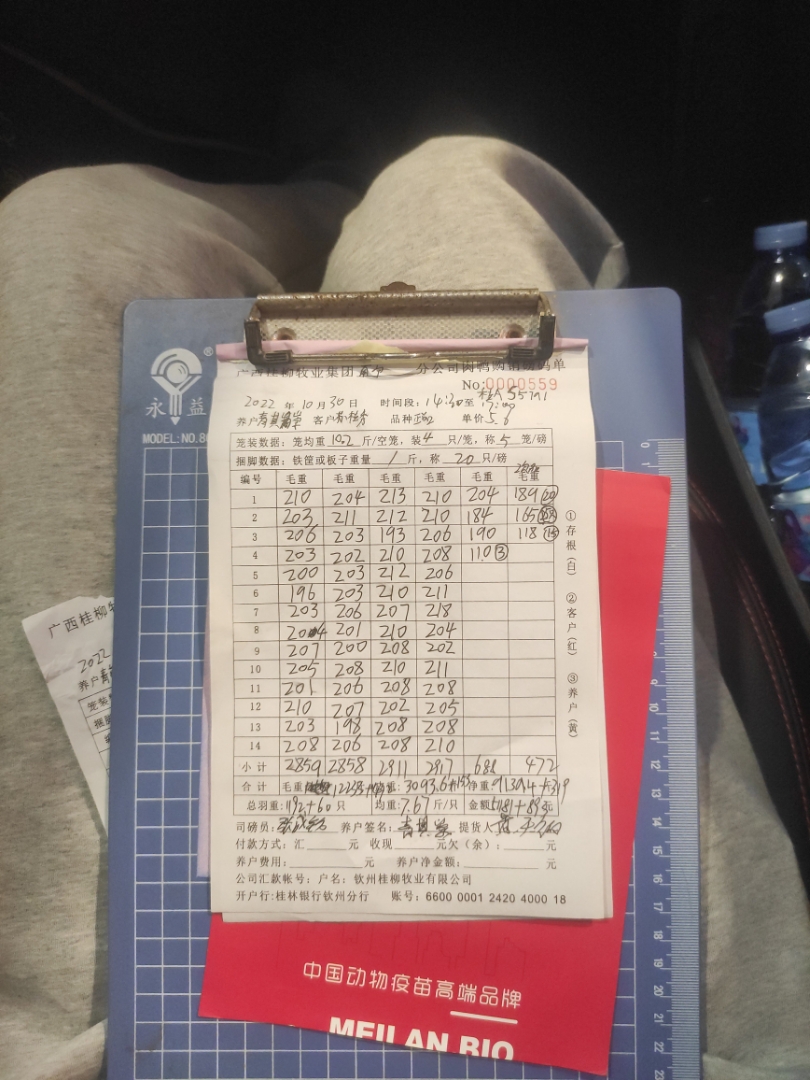 永益
®
MODEL:NO.8
广西桂柳牧业集团 分公司肉鸭购销磅码单
No:0000559
2022 年 10 月 30 日 时间段: 14:30至
养户 客户 品种 单价 5.6
笼装数据: 笼均重 10.2 斤/空笼, 装 4 只/笼, 称 5 笼/磅
捆脚数据: 铁筐或板子重量 / 斤, 称 20 只/磅
编号 毛重 毛重 毛重 毛重 毛重 毛重
1 210 204 213 210 204 189 20
2 203 211 212 210 184 165
3 206 203 193 206 190 118
4 203 202 210 208 110 ③
5 200 203 212 206
6 196 203 210 211
7 203 206 207 218
8 204 201 210 204
9 207 200 208 202
10 205 208 210 211
11 201 206 208 208
12 210 207 202 205
13 203 198 208 208
14 208 206 208 210
小计 2859 2858 2911 2917 688 472
合计 毛重: 重: 3093.6 净重:
总羽重: 1192+60 只 均重: 7.67 斤/只 金额
司磅员: 养户签名: 提货人
付款方式: 汇 元 收现 元欠(余): 元
养户费用: 元 养户净金额:
公司汇款帐号: 户名: 钦州桂柳牧业有限公司
开户行:桂林银行钦州分行 账号: 6600 0001 2420 4000 18
①存根(白) ②客户(红) ③养户(黄)
广西桂柳牧
2022
养户
笼装
捆脚
中国动物疫苗高端品牌
MEILAN BIO